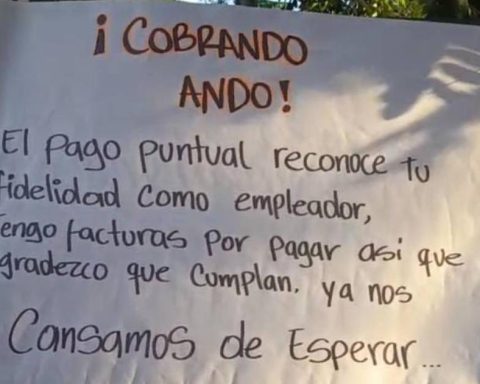 ¡COBRANDO
ANDO!
El Pago puntual reconoce tu
fidelidad como empleador,
engo facturas por pagar asi que
gradezco que cumplan. ya nos
Cansamos de Esperar...